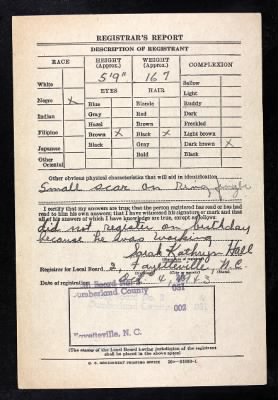 REGISTRAR'S REPORT
DESCRIPTION OF REGISTRANT
RACE
HEIGHT (Approx.)
WEIGHT (Approx.)
COMPLEXION
5'9" 167
White
Sallow
EYES HAIR
Light
Negro X
Blue
Blonde
Ruddy
Indian
Gray
Red
Dark
Hazel
Brown
Freckled
Filipino
Brown X
Black X
Light brown
Japanese
Black
Gray
Dark brown X
Other Oriental
Bald
Black
Other obvious physical characteristics that will aid in identification
Small scar on Ring finger
I certify that my answers are true; that the person registered has read or has had
read to him his own answers; that I have witnessed his signature or mark and that
all of his answers of which I have knowledge are true, except as follows:
did not register on birthday
because he was working
Sarah Kathryn Hall
Registrar for Local Board 2, Fayetteville N.C.
Date of registration
Cumberland County
051
002
Fayetteville, N. C.
(The stamp of the Local Board having jurisdiction of the registrant
shall be placed in the above space)
U. S. GOVERNMENT PRINTING OFFICE